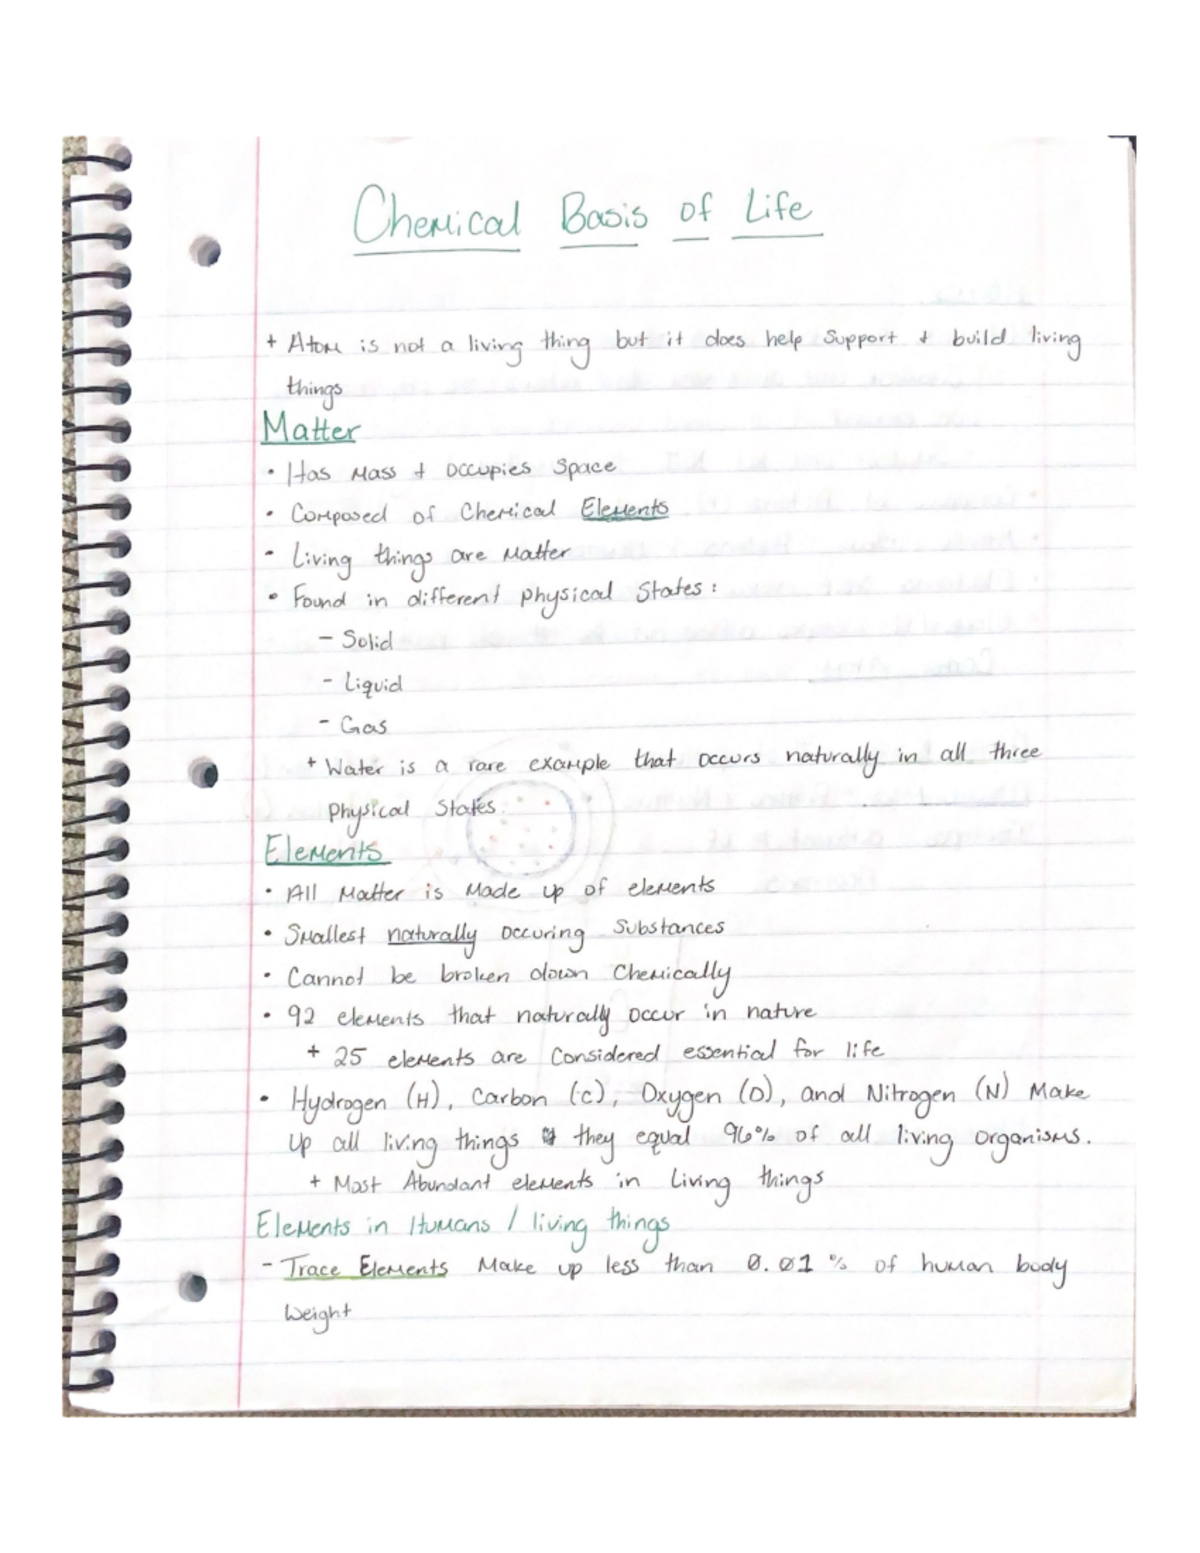 Chemical Basis of Life
+ Atom is not a living thing but it does help support + build living
things
Matter
• Has mass + occupies space
• Composed of Chemical Elements
- Living things are matter
• Found in different physical states:
- Solid
- Liquid
- Gas
+ Water is a rare example that occurs naturally in all three
physical states.
Elements
• All matter is made up of elements
• Smallest naturally occuring substances
• Cannot be broken down chemically
• 92 elements that naturally occur in nature
+ 25 elements are considered essential for life
• Hydrogen (H), Carbon (C), Oxygen (O), and Nitrogen (N) make
up all living things they equal 96% of all living organisms.
+ Most Abundant elements in living things
Elements in Humans / living things
- Trace Elements make up less than 0.01 % of human body
weight